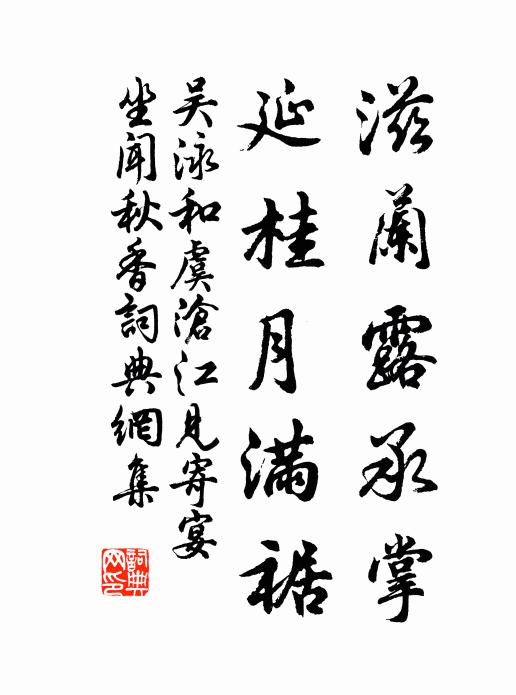 滋蘭露承掌
延桂月滿裾
吳泳和虞滄江見寄宴
坐聞秋香詞典網集
詞典網印